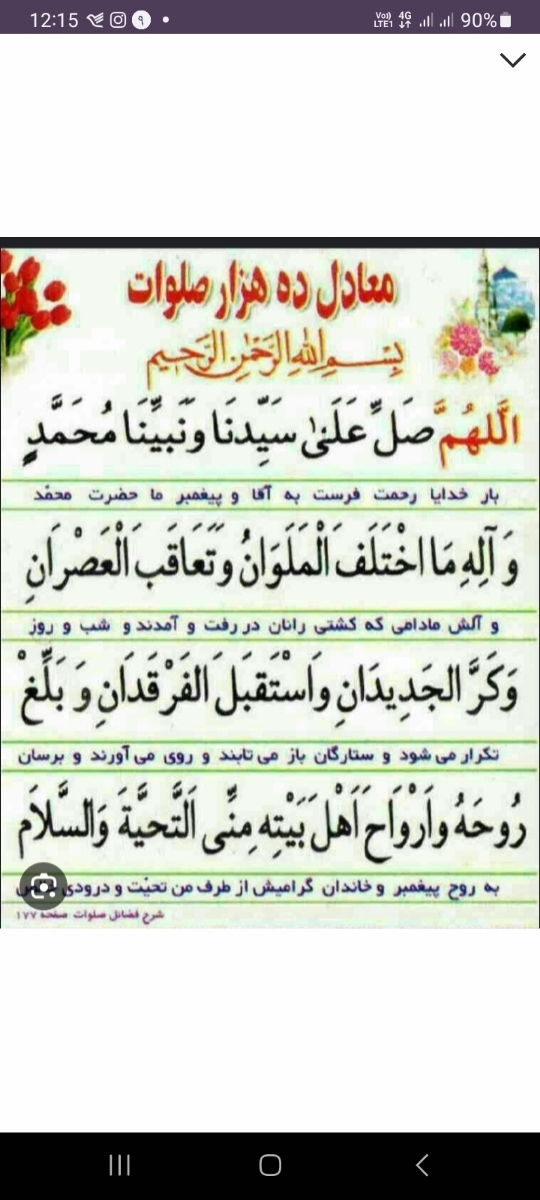 12:15
Vo)) LTE1 4G 90%
معادل ده هزار صلوات
بِسْمِ اللهِ الرَّحْمٰنِ الرَّحِيمِ
اَللّٰهُمَّ صَلِّ عَلَىٰ سَيِّدِنَا وَنَبِيِّنَا مُحَمَّدٍ
بار خدایا رحمت فرست به آقا و پیغمبر ما حضرت محمّد
وَ آلِهِ مَا اخْتَلَفَ الْمَلَوَانُ وَتَعَاقَبَ الْعَصْرَانِ
و آلش مادامی که کشتی رانان در رفت و آمدند و شب و روز
وَكَرَّ الجَدِيدَانِ وَاسْتَقبَلَ الفَرْقَدَانِ وَ بَلِّغْ
تکرار می شود و ستارگان باز می تابند و روی می آورند و برسان
رُوحَهُ وَاَرْوَاحَ اَهْلَ بَيْتِهِ مِنِّى اَلتَّحيَّةَ وَالسَّلاَم
به روح پیغمبر و خاندان گرامیش از طرف من تحیّت و درودی
شرح فضائل صلوات صفحه ۱۷۷